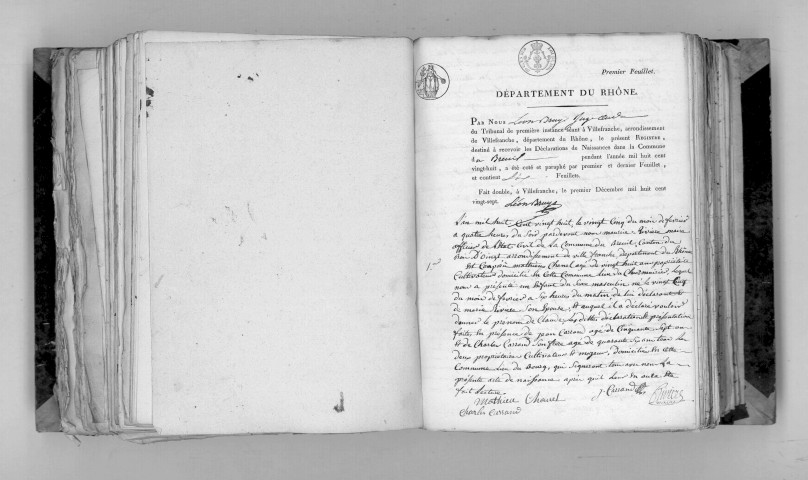 Premier Feuillet.
DÉPARTEMENT DU RHÔNE.
PAR NOUS Léon Bruys Juge
du Tribunal de première instance séant à Villefranche, arrondissement
de Villefranche, département du Rhône, le présent REGISTRE,
destiné à recevoir les Déclarations de Naissances dans la Commune
du Breuil pendant l'année mil huit cent
vingt-huit, a été coté et paraphé par premier et dernier Feuillet,
et contient Six Feuillets.
Fait double, à Villefranche, le premier Décembre mil huit cent
vingt-sept.
Léon Bruys
L'an mil huit Cent vingt huit, le vingt Cinq du mois de fevrier
a quatre heures du Soir pardevant nous maurice Riviere maire
officier de l'état Civil de La Commune du Breuil, Canton du
Bois D'oingt arrondissement de ville franche, departement du Rhône
1.er
Est Comparu mathieu Chanel age de vingt huit ans proprietaire
Cultivateur domicilié en Cette Commune lieu du lequel
nous a présenté un Enfant du Sexe masculin né le vingt Cinq
du mois de fevrier a Six heures du matin, de lui déclarant et
de marie Son Epouse, Et auquel il a déclaré vouloir
donner le prénom de Claude, les dittes déclaration et présentation
faites En présence de jean Carrand age de Cinquante Sept ans
Et de Charles Carrand Son frere age de quarante Six ans tous les
deux proprietaires Cultivateurs domiciliés En cette
Commune lieu du Bourg, qui Signeront tous avec nous La
présente acte de naissance après qu'il leur En aura été
fait lecture.
Mathieu Chanel
J. Carrand
Riviere
Charles Carrand